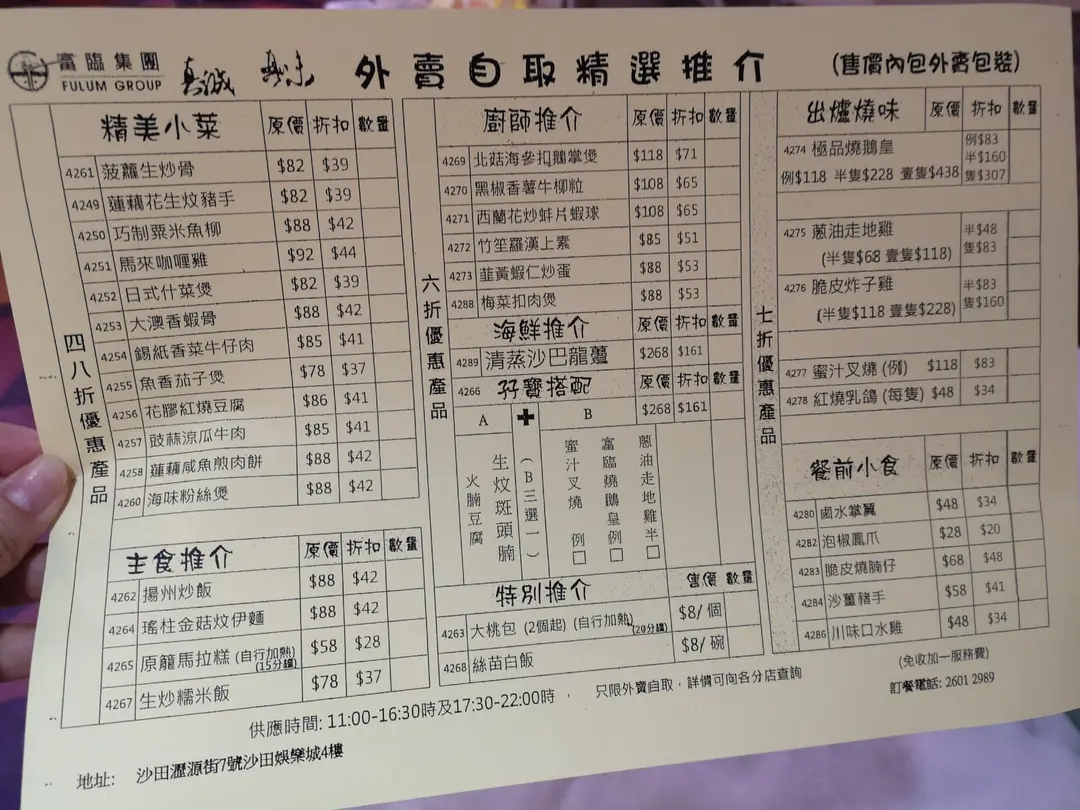 富臨集團
FULUM GROUP
真誠 真味
外賣自取精選推介
(售價內包外賣包裝)
四八折優惠產品
精美小菜 原價 折扣 數量
4261 菠蘿生炒骨 $82 $39
4249 蓮藕花生炆豬手 $82 $39
4250 巧制粟米魚柳 $88 $42
4251 馬來咖喱雞 $92 $44
4252 日式什菜煲 $82 $39
4253 大澳香蝦骨 $88 $42
4254 錫紙香菜牛仔肉 $85 $41
4255 魚香茄子煲 $78 $37
4256 花膠紅燒豆腐 $86 $41
4257 豉蒜涼瓜牛肉 $85 $41
4258 蓮藕咸魚煎肉餅 $88 $42
4260 海味粉絲煲 $88 $42
主食推介 原價 折扣 數量
4262 揚州炒飯 $88 $42
4264 瑤柱金菇炆伊麵 $88 $42
4265 原籠馬拉糕 (自行加熱) $58 $28
(15分鐘)
4267 生炒糯米飯 $78 $37
六折優惠產品
廚師推介 原價 折扣 數量
4269 北菇海參扣鵝掌煲 $118 $71
4270 黑椒香薯牛柳粒 $108 $65
4271 西蘭花炒蚌片蝦球 $108 $65
4272 竹笙羅漢上素 $85 $51
4273 韮黃蝦仁炒蛋 $88 $53
4288 梅菜扣肉煲 $88 $53
海鮮推介 原價 折扣 數量
4289 清蒸沙巴龍躉 $268 $161
4266 孖寶搭配 原價 折扣 數量
$268 $161
A ✚ B
火腩豆腐
生炆斑頭腩
(B三選一)
蜜汁叉燒 例□
富臨燒鵝皇例□
蔥油走地雞半□
特別推介 售價 數量
4263 大桃包 (2個起) (自行加熱) $8/ 個
(20分鐘)
4268 絲苗白飯 $8/ 碗
七折優惠產品
出爐燒味 原價 折扣 數量
4274 極品燒鵝皇 例$83
半$160
例$118 半隻$228 壹隻$438 隻$307
4275 蔥油走地雞 半$48
(半隻$68 壹隻$118) 隻$83
4276 脆皮炸子雞 半$83
(半隻$118 壹隻$228) 隻$160
4277 蜜汁叉燒 (例) $118 $83
4278 紅燒乳鴿 (每隻) $48 $34
餐前小食 原價 折扣 數量
4280 鹵水掌翼 $48 $34
4282 泡椒鳳爪 $28 $20
4283 脆皮燒腩仔 $68 $48
4284 沙薑豬手 $58 $41
4286 川味口水雞 $48 $34
供應時間: 11:00-16:30時及17:30-22:00時 , 只限外賣自取，詳情可向各分店查詢
(免收加一服務費)
訂餐電話: 2601 2989
地址: 沙田瀝源街7號沙田娛樂城4樓